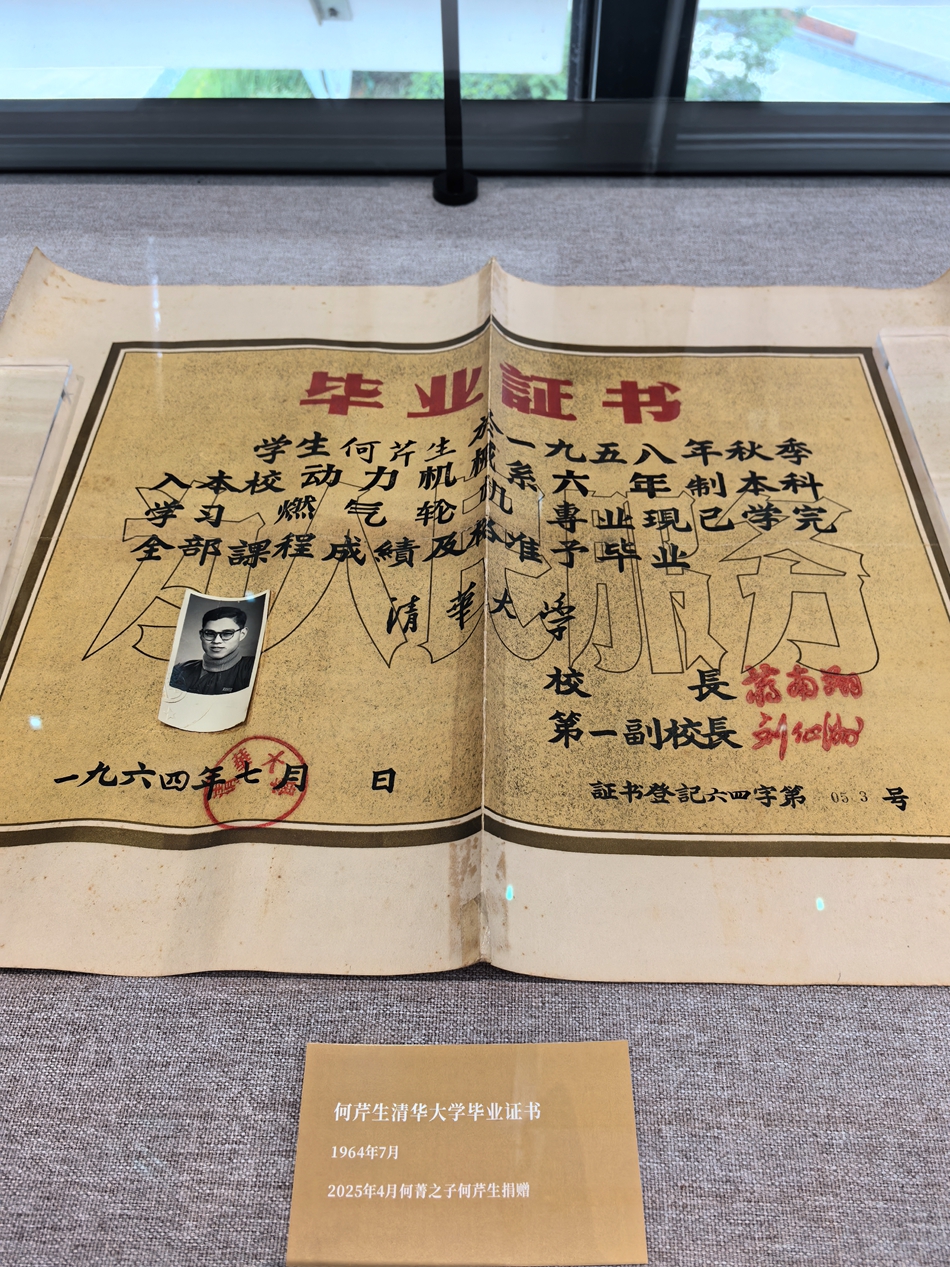 毕业証书
学生何芹生於一九五八年秋季
入本校动力机械系六年制本科
学习燃气轮机專业現已学完
全部課程成績及格准予毕业
为人民服务
清華大学
校長蒋南翔
第一副校長刘仙洲
一九六四年七月 日
証书登記六四字第 05 3 号
何芹生清华大学毕业证书
1964年7月
2025年4月何菁之子何芹生捐赠